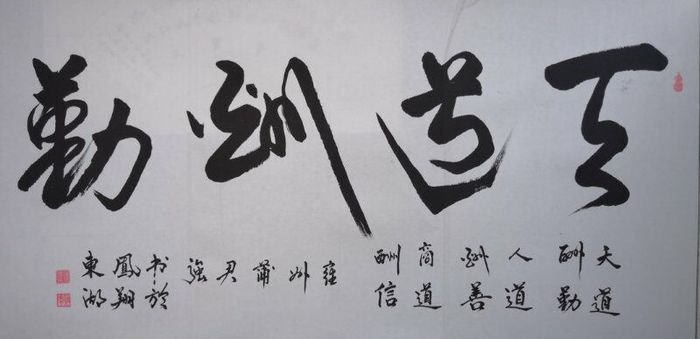 天道酬勤
天道
酬勤
人道
酬善
商道
酬信
雍州蒲君強
书於
鳳翔
東湖